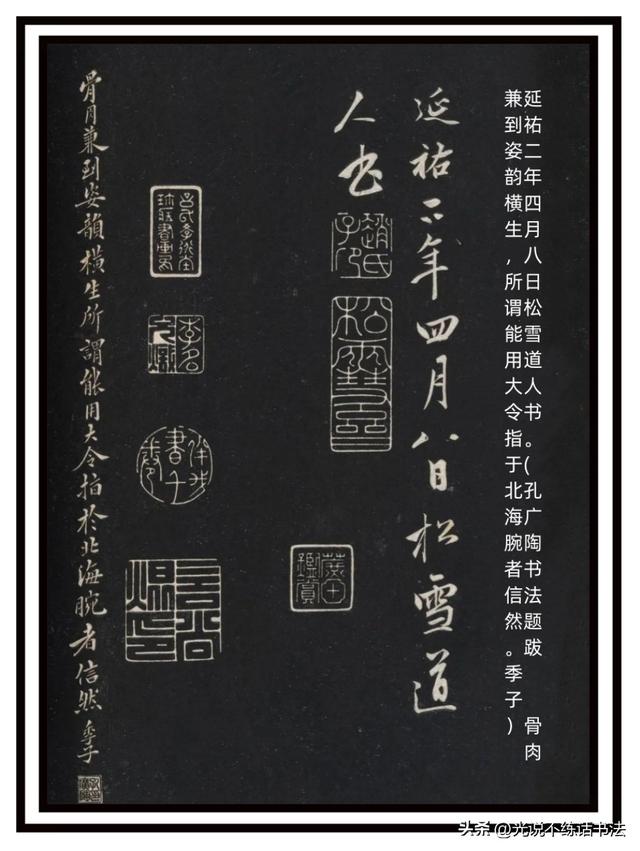 延祐二年四月八日松雪道人书。(孔广陶书法题跋 骨肉
兼到姿韵横生,所谓能用大令指于北海腕者信然。季子)
延祐二年四月八日松雪道
人书
趙氏子昂
松雪齋
骨月兼到姿韻橫生所謂能用大令指於北海腕者信然 季子
头条 @光说不练话书法